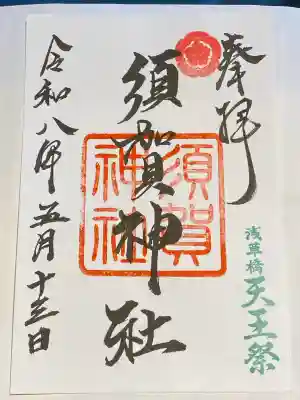 奉拝
浅草橋
天王祭
須賀神社
須賀
神社
令和八年五月十三日